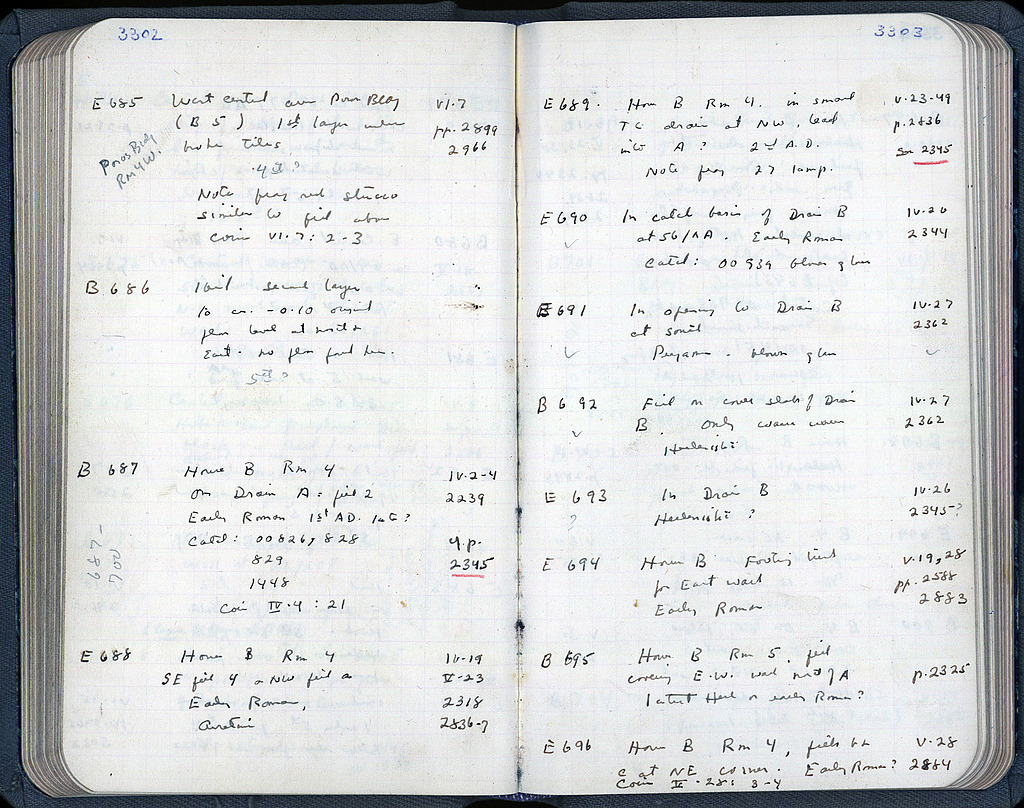 3302
E 685 West central over Poros Bldg VI.7
(B 5) 1st layer under pp. 2899
broke tiles, 2966
Poros Bldg
Rm 4 W.
4th?
Note frag red stucco
similar to fill above
Coin VI.7: 2-3
B 686 Ibid second layer "
to ca. -0.10 original
floor level at north &
East. no floor found here.
5th?
B 687 House B Rm 4 IV-2-4
on Drain A = fill 2 2239
Early Roman 1st AD. late?
Catd: 00826, 828 4.p.
829 2345
1448
687-
700
Coin IV.4: 21
E 688 House B Rm 4 IV-19
SE fill 4 a NW fill a V-23
Early Roman, 2318
2836-7
3303
E 689. House B Rm 4. in small V.23-49
TC drain at NW lead p.2836
into A? 2nd A.D. 2345
Note frag 27 lamp.
E 690 In catch basin of Drain B IV-26
at 56/ΛA. Early Roman 2344
Catd: 00939 blown glass
E 691 In opening to Drain B IV-27
at south 2362
Pergam. blown glass
B 692 Fill on cover slabs of Drain IV-27
B. Only coarse ware 2362
Hellenistic
E 693 In Drain B IV-26
? Hellenistic? 2345?
E 694 House B Footing trench V-19, 28
for East wall pp. 2588
Early Roman 2883
B 695 House B Rm 5. fill
covering E.W. wall north of A p.2325
latest Hell or early Roman?
E 696 House B Rm 4, fills b& V-28
c at NE corner. Early Roman? 2884
Coin V.28: 3-4